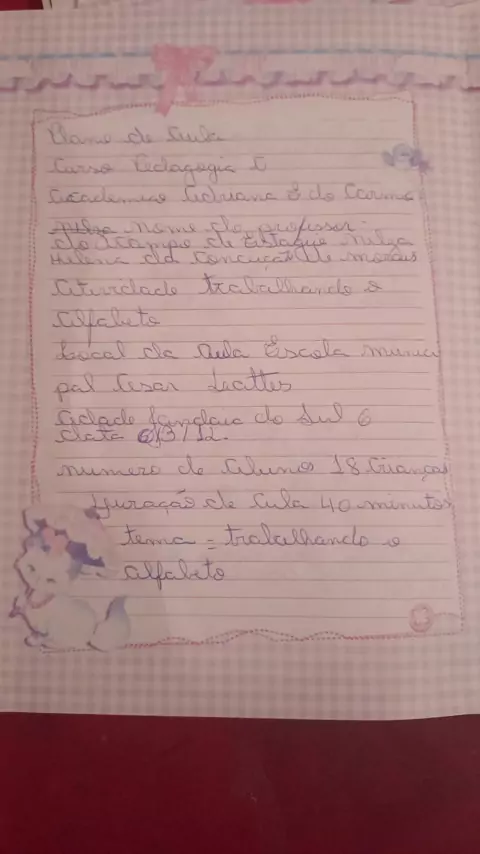 Plano de Aula
Curso Pedagogia
Academica Adriana E do Carmo
nome do professor
do campo de Estagio nilza
Helena da de morais
Atividade trabalhando o
Alfabeto
Local da Aula Escola munici
pal Cesar Lattes
Cidade Jandaia do Sul
data 6/3/12.
numero de Alunos 18 Crianças
Duração de Aula 40 minutos
tema = trabalhando o
alfabeto